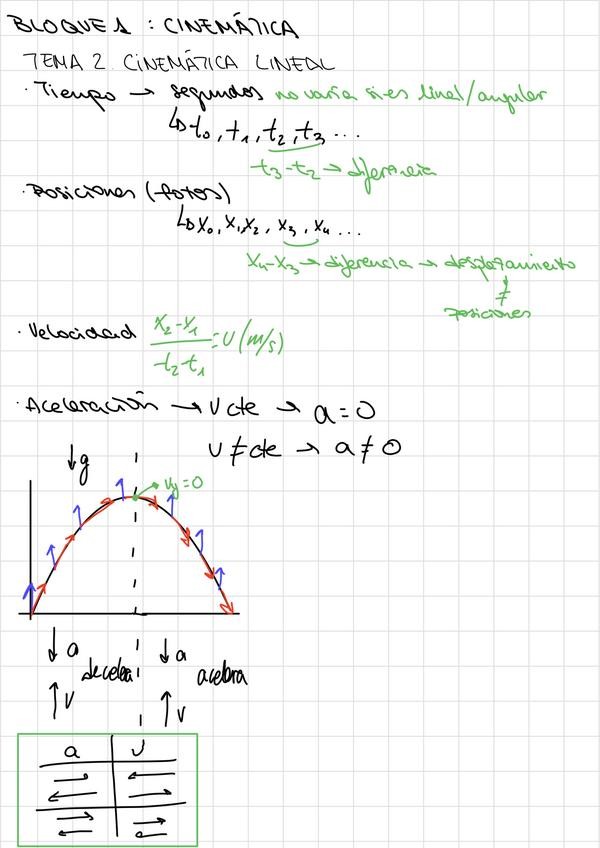 BLOQUE 1 : CINEMÁTICA
TEMA 2. CINEMÁTICA LINEAL
· Tiempo → segundos no varía si es lineal/angular
↳ t₀, t₁, t₂, t₃ ...
t₃-t₂ → diferencia
· Posiciones (fotos)
↳ x₀, x₁, x₂, x₃, x₄ ...
x₄-x₃ → diferencia → desplazamiento
≠
posiciones
· Velocidad (x₂-x₁)/(t₂-t₁) = v (m/s)
· Aceleración → v cte → a = 0
v ≠ cte → a ≠ 0
↓g
vy = 0
↓a ↓a
decelera acelera
↑v ↑v
a v
→ ←
← →
→ →
← ←